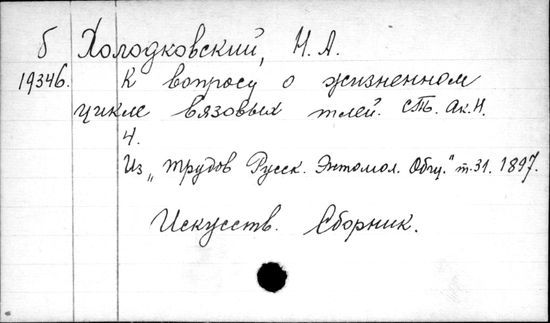 б Холодковский, Н. А.
19346. К вопросу о жизненном
цикле вязовых тлей.
4.
Из „Трудов Русск. Энтомол. Общ.“ т. 31. 1897.
Искусств. Сборник.